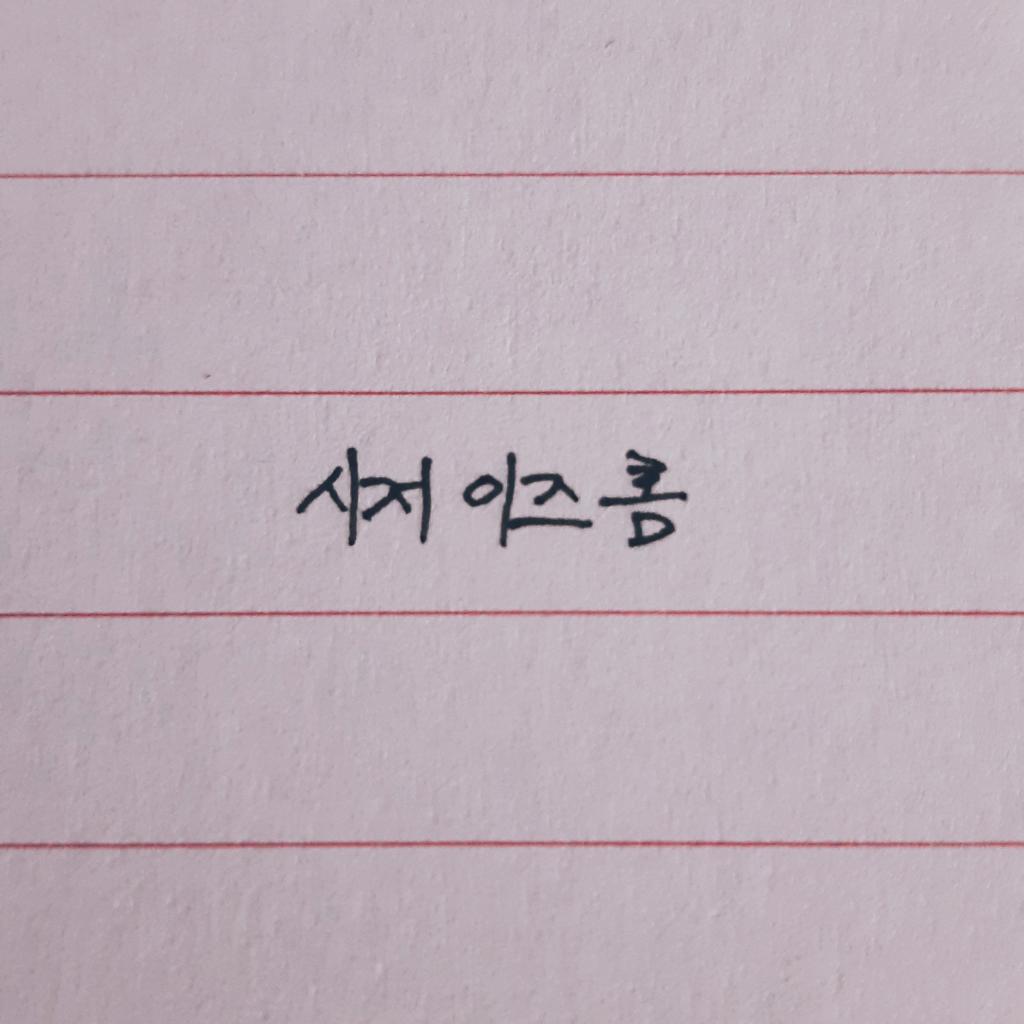 시저 이즈 홈